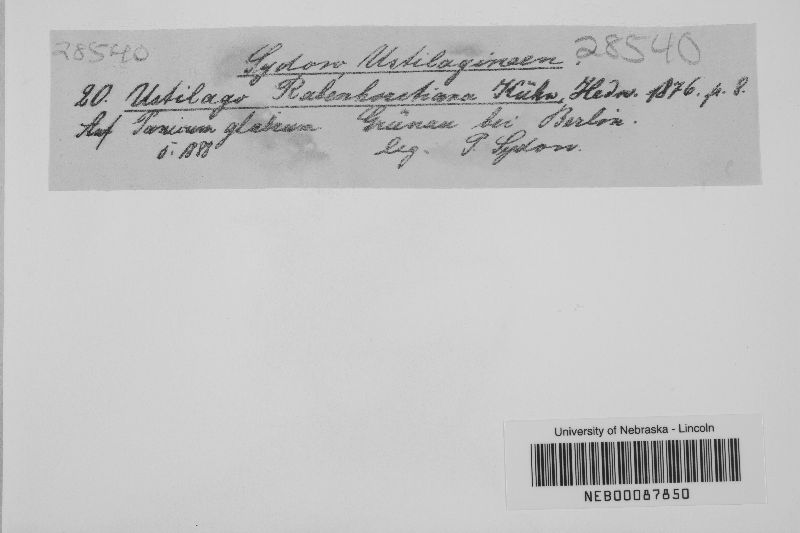 28540 Sydow Ustilagineen. 28540
20. Ustilago Rabenhorstiana Kühn, Hedw. 1876. p. 8.
Auf Panicum glabrum Grünau bei Berlin.
1888 leg. P. Sydow.
University of Nebraska - Lincoln
NEB00087850